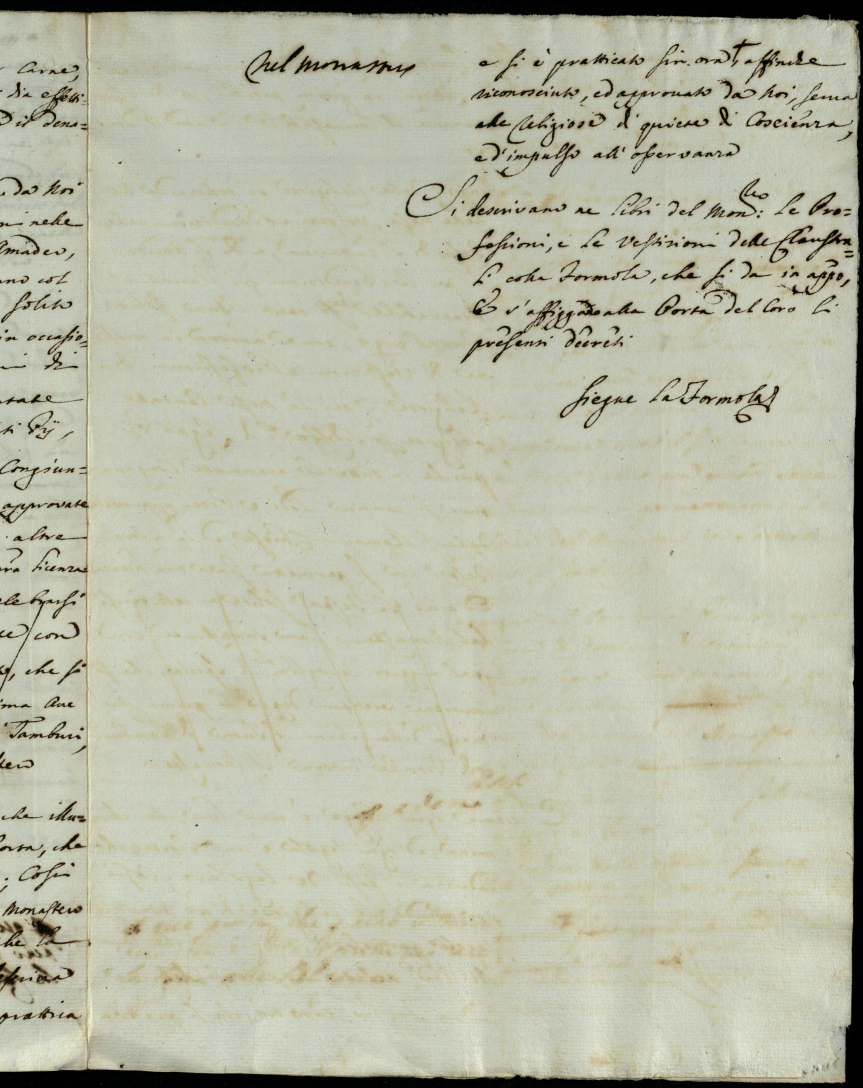 Carne,
dia effetti-
Dio dena=
da Noi
ni nelle
Amadeo,
ano col
solito
in occasio-
ni di
ti Pÿ,
Congiun=
approvate
altre
licenza
lebrarsi
con
, che si
ima Ave
Tamburi,
che illu=
orta, che
; Cosi
Monastero
che la
prattica
nel monastero
e si è pratticato sin ora † affinche
riconosciuto, ed approvato da Noi, serva
alle Religiose di quiete di Coscienza,
e d'impulso all' osservanza
Si descrivano ne libri del Mon.ro: le Pro=
fessioni, e le Vestizioni delle Claustra=
li colla Formola, che si da in app.o,
E s'affiggano alla Porta del Coro li
presenti decreti
siegue la Formola